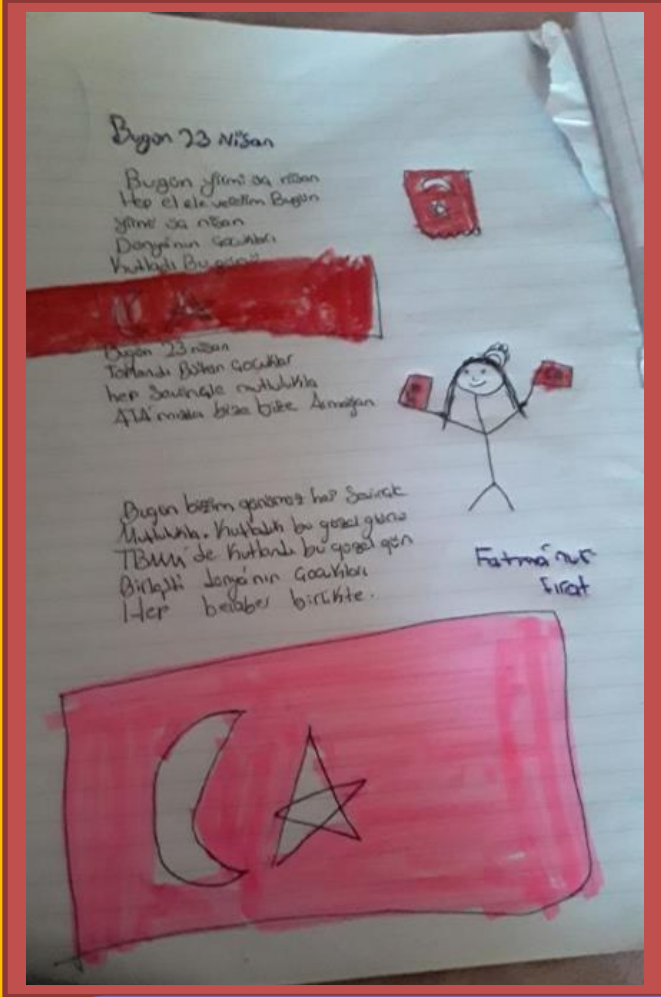 Bugün 23 Nisan
Bugün yirmi üç nisan
Hep el ele verelim Bugün
yirmi üç nisan
Dünya'nın Çocukları
Kutladı Bu günü
Bugün 23 nisan
Toplandı Bütün Çocuklar
hep Sevinçle mutlulukla
ATA'mızda bize bize Armağan
Bugün bizim günümüz hep Sevinçle
Mutlulukla. Kutladık bu güzel günü
TBMM'de kutlandı bu güzel gün
Birleşti dünya'nın Çocukları
Hep beraber birlikte.
Fatma'nur
Fırat